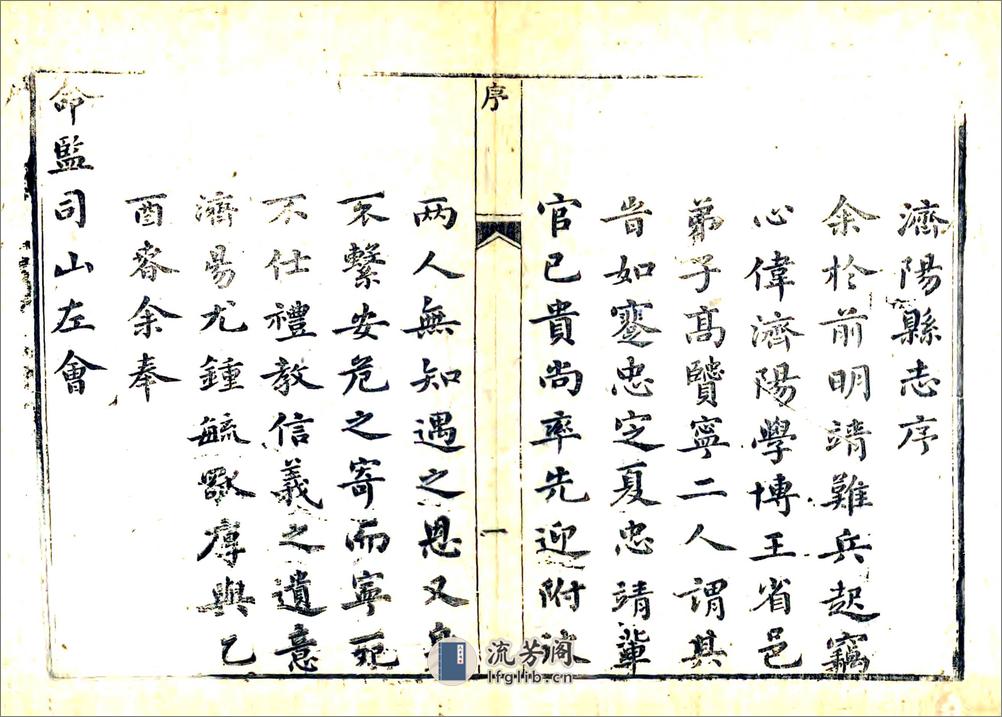 濟陽縣志序
余於前明靖難兵起竊
心偉濟陽學博王省邑
弟子高贒寧二人謂其
旹如蹇忠定夏忠靖輩
官已貴尚率先迎附
序
一
两人無知遇之恩又
不繫安危之寄而寧死
不仕禮教信義之遺意
濟昜尤鍾毓厚與乙
酉春余奉
命監司山左會
流芳阁
lfglib.cn